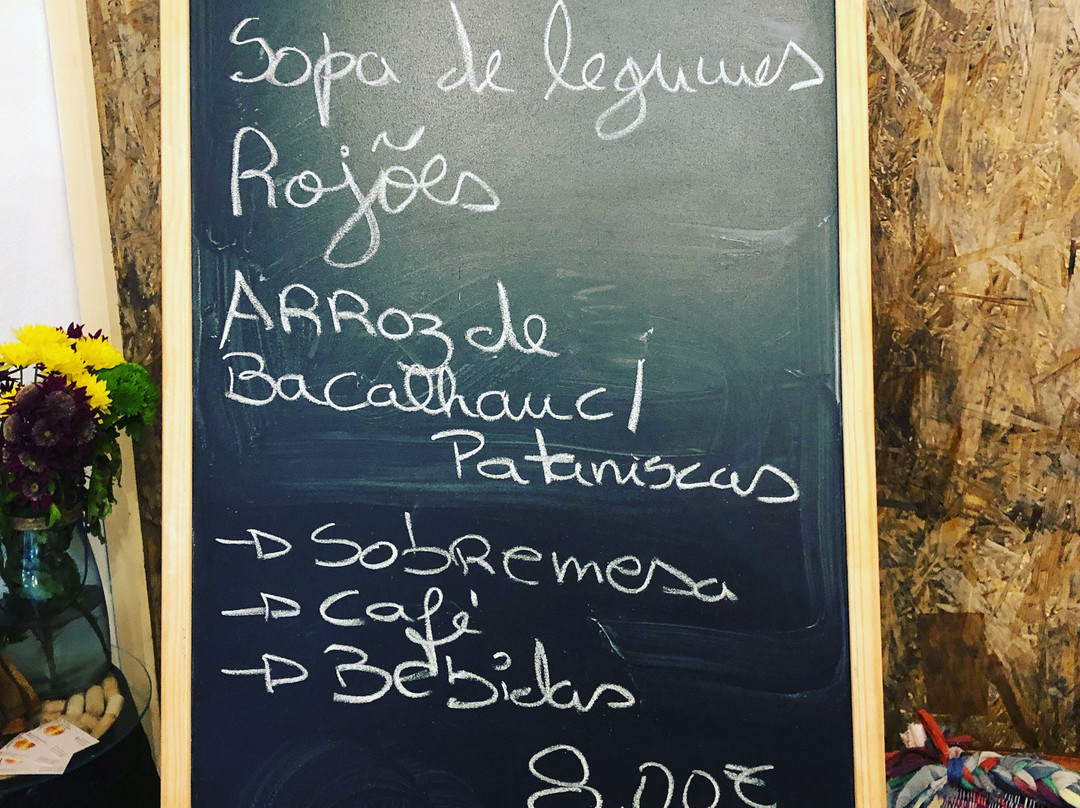 Sopa de legumes
Rojões
ARROz de
Bacalhau c/
Pataniscas
→ SobRemesa
→ Café
→ Bebidas
8.00€